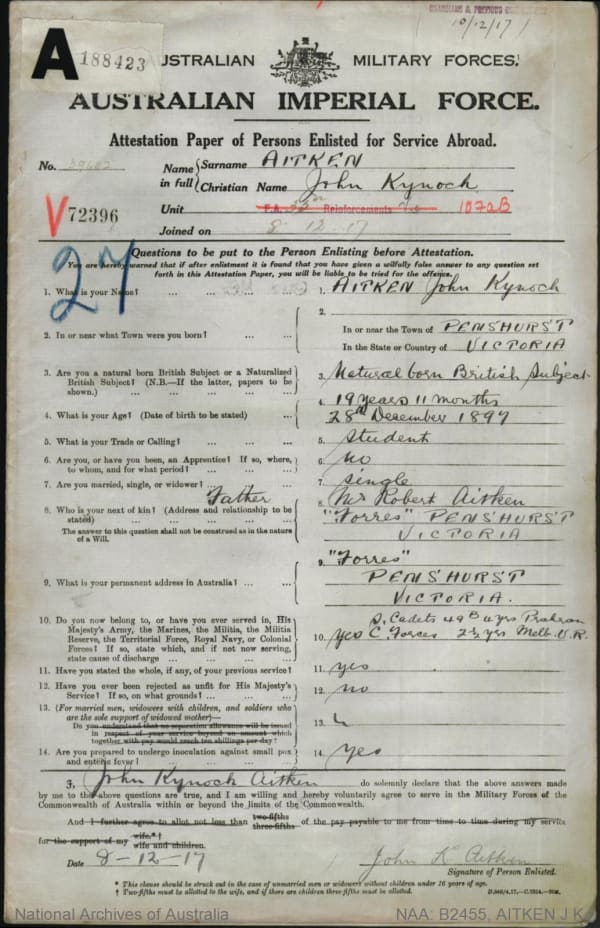 10/12/17
A
188423
AUSTRALIAN MILITARY FORCES.
AUSTRALIAN IMPERIAL FORCE.
Attestation Paper of Persons Enlisted for Service Abroad.
No.
Name in full { Surname AITKEN
Christian Name John Kynoch
V72396
Unit F.A. Reinforcements 1072B
Joined on 8 12-17
27
Questions to be put to the Person Enlisting before Attestation.
You are hereby warned that if after enlistment it is found that you have given a wilfully false answer to any question set
forth in this Attestation Paper, you will be liable to be tried for the offence.
1. What is your Name? ... ... 1. AITKEN John Kynoch
2. In or near what Town were you born? ... ... 2. In or near the Town of PENSHURST
In the State or Country of VICTORIA
3. Are you a natural born British Subject or a Naturalized
British Subject? (N.B.—If the latter, papers to be
shown.) ... ... 3. Natural born British Subject
4. What is your Age? (Date of birth to be stated) ... 4. 19 years 11 months
28th December 1897
5. What is your Trade or Calling? ... ... 5. Student
6. Are you, or have you been, an Apprentice? If so, where,
to whom, and for what period? ... ... 6. no
7. Are you married, single, or widower? ... 7. single
Father
8. Who is your next of kin? (Address and relationship to be
stated) ... ... 8. Mr Robert Aitken
The answer to this question shall not be construed as in the nature
of a Will.
"Forres" PENSHURST
VICTORIA
9. What is your permanent address in Australia? ... ... 9. "Forres"
PENSHURST
VICTORIA.
10. Do you now belong to, or have you ever served in, His
Majesty's Army, the Marines, the Militia, the Militia
Reserve, the Territorial Force, Royal Navy, or Colonial
Forces? If so, state which, and if not now serving,
state cause of discharge ... ... 10. yes S. Cadets 49B 4 yrs Prahran
C. Forces 2½ yrs Melb. U.R.
11. Have you stated the whole, if any, of your previous service? 11. yes
12. Have you ever been rejected as unfit for His Majesty's
Service? If so, on what grounds? ... ... 12. no
13. (For married men, widowers with children, and soldiers who
are the sole support of widowed mother)—
Do you understand that no separation allowance will be issued
in respect of your service beyond an amount which
together with pay would reach ten shillings per day? 13.
14. Are you prepared to undergo inoculation against small pox
and enteric fever? ... ... 14. yes
I, John Kynoch Aitken do solemnly declare that the above answers made
by me to the above questions are true, and I am willing and hereby voluntarily agree to serve in the Military Forces of the
Commonwealth of Australia within or beyond the limits of the Commonwealth.
And I further agree to allot not less than two-fifths three-fifths of the pay payable to me from time to time during my service
for the support of my wife.*† wife and children.
Date 8-12-17
John K Aitken
Signature of Person Enlisted.
* This clause should be struck out in the case of unmarried men or widowers without children under 16 years of age.
† Two-fifths must be allotted to the wife, and if there are children three-fifths must be allotted.
National Archives of Australia
NAA: B2455, AITKEN J K